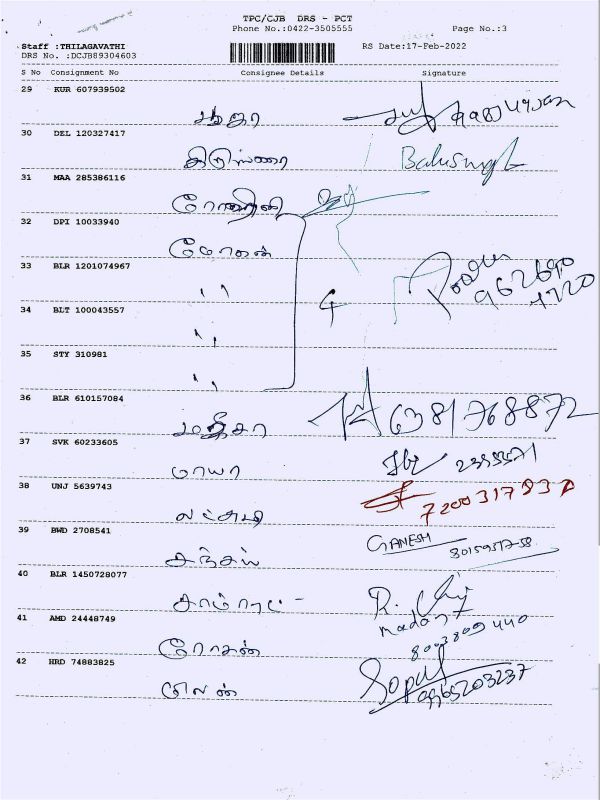 TPC/CJB DRS - PCT
Phone No.:0422-3505555 Page No.:3
Staff :THILAGAVATHI RS Date:17-Feb-2022
DRS No. :DCJB89304603
S No Consignment No Consignee Details Signature
29 KUR 607939502
சுதா
30 DEL 120327417
Balusingh
31 MAA 285386116
32 DPI 10033940
மோகன்
33 BLR 1201074967
" 962690
4720
34 BLT 100043557
" 4
35 STY 310981
"
36 BLR 610157084
6381768872
37 SVK 60233605
மாயா
38 UNJ 5639743
லட்சுமி 7200317937
39 BWD 2708541
சஞ்சய் GANESH
40 BLR 1450728077
சாம்ராட் - R.
41 AMD 24448749
ரோசன் 8003809440
42 HRD 74883825
லென் Gopal
9965203237